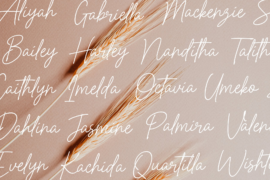 Aliyah Gabriella Mackenzie S
Bailey Harley Nanditha Talith
Caithlyn Imelda Octavia Umeko
Dahlina Jasmine Palmira Valen
Evelyn Kachida Quartilla Wisht